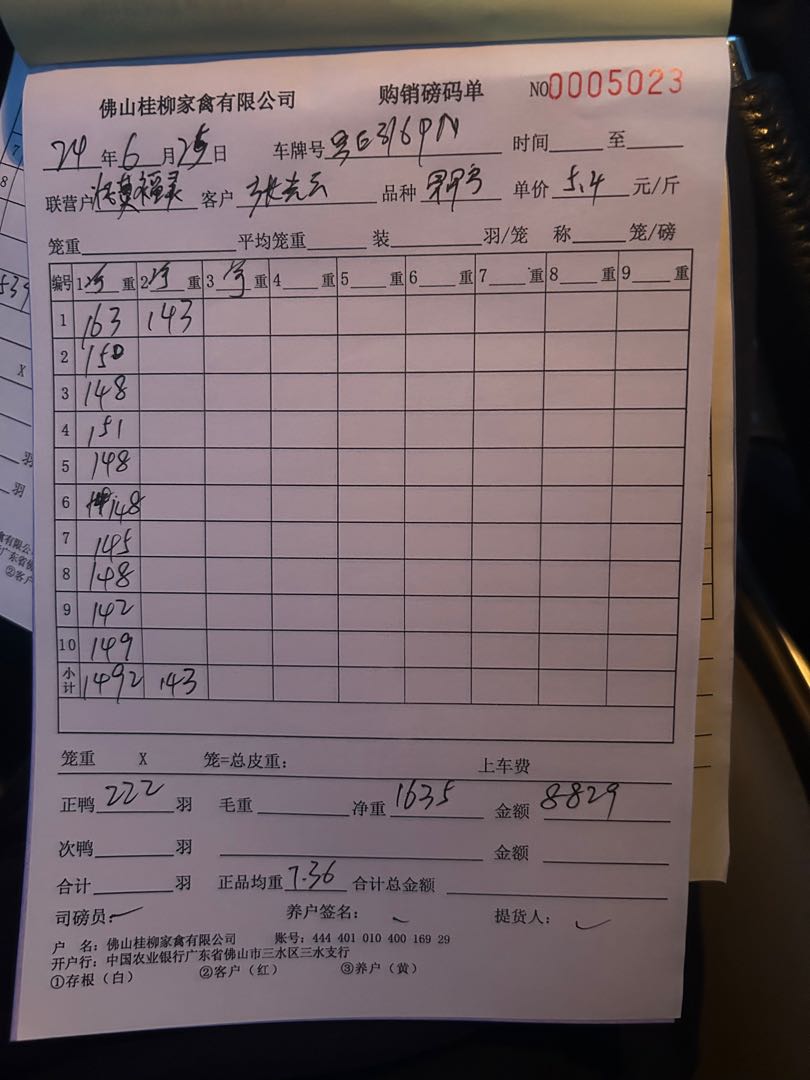 佛山桂柳家禽有限公司 购销磅码单 NO0005023
24年6月25日 车牌号 粤E3169N 时间 至
联营户 福录 客户 张 品种 单价 5.4 元/斤
笼重 平均笼重 装 羽/笼 称 笼/磅
编号 1 重 2 重 3 重 4 重 5 重 6 重 7 重 8 重 9 重
1 163 143
2 150
3 148
4 151
5 148
6 148
7 145
8 148
9 142
10 149
小计 1492 143
笼重 X 笼=总皮重: 上车费
正鸭 222 羽 毛重 净重 1635 金额 8829
次鸭 羽 金额
合计 羽 正品均重 7.36 合计总金额
司磅员: 养户签名: 提货人:
户 名: 佛山桂柳家禽有限公司 账号: 444 401 010 400 169 29
开户行: 中国农业银行广东省佛山市三水区三水支行
①存根(白) ②客户(红) ③养户(黄)